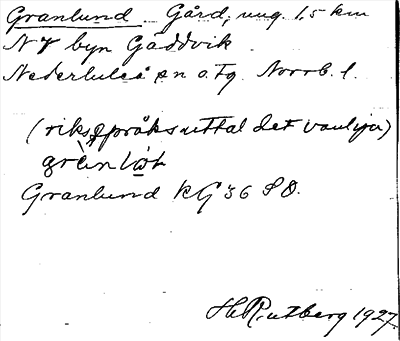 Granlund Gård, ung. 1,5 km
N V byn Gäddvik
Nederluleå sn o. tg. Norrb. l.
(riksspråksuttal det vanliga)
Granlund KG 36 S O.
H Rutberg 1927.